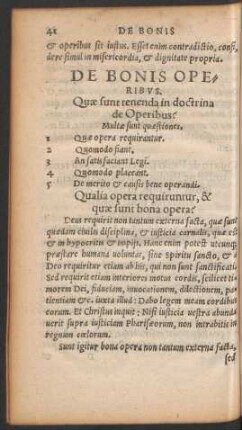 42 DE BONIS
& operibus sit iustus. Esset enim contradictio, consi,
dere simul in misericordia, & dignitate propria.
DE BONIS OPE-
RIBVS.
Quæ sunt tenenda in doctrina
de Operibus?
Multæ sunt quæstiones.
1 Quæ opera requirantur.
2 Quomodo fiant.
3 An satisfaciant Legi.
4 Quomodo placeant.
5 De merito & causis bene operandi.
Qualia opera requiruntur, &
quæ sunt bona opera?
Deus requirit non tantum externa facta, quæ sunt
quædam ciuilis disciplina, & iusticia carnalis, quæ est
& in hypocritis & impijs. Hanc enim potest utcunq;
præstare humana uoluntas, sine spiritu sancto, &
Deo requiritur etiam ab his, qui non sunt sanctificati.
Sed requirit etiam interiores motus cordis, scilicet ti
morem Dei, fiduciam, inuocationem, dilectionem, pa
tientiam &c. iuxta illud: Dabo legem meam cordibus
eorum. Et Christus inquit: Nisi iusticia uestra abunda
uerit supra iusticiam Phariseorum, non intrabitis in
regnum cœlorum.
Sunt igitur bona opera non tantum externa facta,
sed